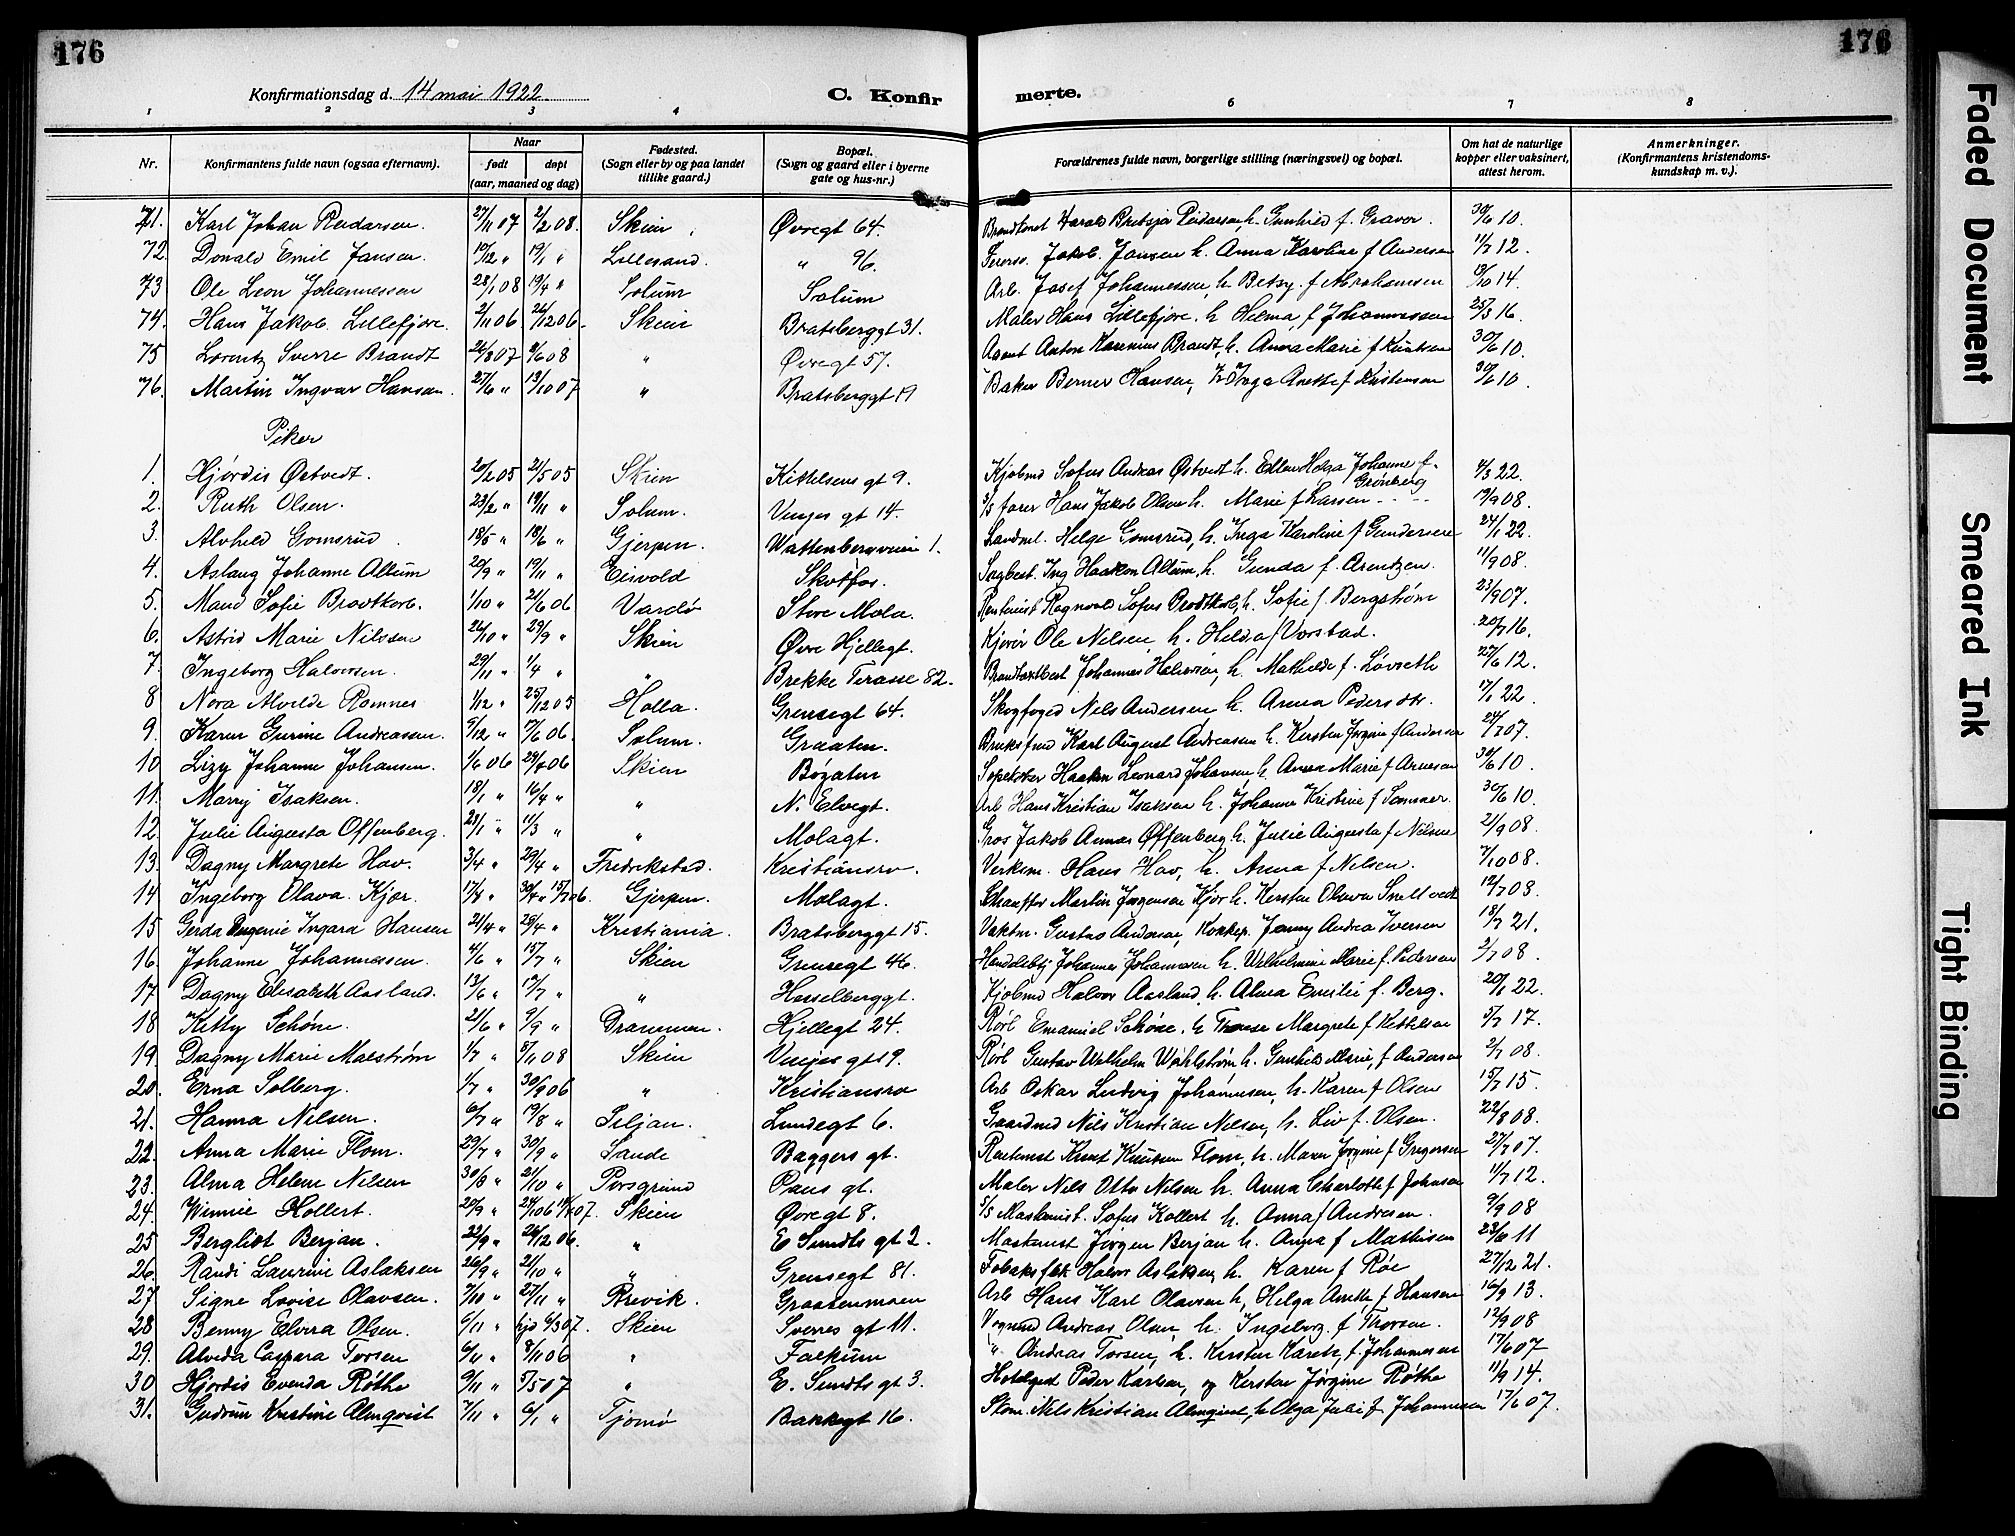 176
176
Konfirmationsdag d. 14 mai 1922
C. Konfirmerte.
1 2 3 4 6 7 8
Nr.
Konfirmantens fulde navn (ogsaa efternavn).
Naar
født døpt
(aar, maaned og dag)
Fødested.
(Sogn eller by og paa landet
tillike gaard.)
Bopæl.
(Sogn og gaard eller i byerne
gate og hus-nr.)
Forældrenes fulde navn, borgerlige stilling (næringsvei) og bopæl.
Om hat de naturlige
kopper eller vaksinert,
attest herom.
Anmerkninger.
(Konfirmantens kristendoms-
kundskap m. v.).
71. Karl Johan Reidarsen. 27/11 07 2/2 08. Skien Øvregt 64. Harald h. Gunhild f. Gravor. 30/6 10.
72 Donald Emil Jansen. 10/12 " 19/1 " Lillesand. " 96. Jakob Jansen h. Anna Karoline f Andersen 11/7 12.
73 Ole Leon Johannessen 28/1 08 19/4 " Solum Solum Arb. Josef Johannessen, h. Betsy f Abrahamsen 19/10 14.
74. Hans Jakob Lillefjære. 2/11 06 26/12 06. Skien Bratsberggt 31. Maler Hans Lillefjære. h. Helma f Johannessen 25/3 16.
75 Lorentz Sverre Brandt 26/8 07 8/6 08 " Øvregt 57. Agent Anton Brandt, h. Anna Marie f Knutsen 30/6 10.
76. Martin Ingvar Hansen. 27/6 " 13/10 07 " Bratsberggt 19 Baker Berner Hansen, Inga Anette f Kristensen 30/6 10.
Piker
1. Hjørdis Østvedt. 20/2 05 21/5 05 Skien Kittelsens gt 9. Kjøbmd Sofus Andreas Østvedt h. Ellen Helga Johanne f.
Grønberg 4/3 22.
2. Ruth Olsen. 23/2 " 19/11 " Solum. Venjes gt 14. S/S fører Hans Jakob Olsen h. Marie f Larsen 19/9 08.
3. Alvhild Gomsrud 18/5 " 18/6 " Gjerpen. Wattenbergveien 1. Landml. Helge Gomsrud, h. Inga Karoline f Gundersen 24/1 22.
4. Aslaug Johanne Allum 20/9 " 19/11 " Eisvold Skotfos. Sagbest. Ing Haakon Allum, h. Gunda f. Arentzen. 11/9 08.
5. Maud Sofie Brodtkorb. 1/10 " 21/6 06 Vardø Store Mola. Rentenist Ragnvald Sofus Brodtkorb, h. Sofie f. Bergstrøm 23/9 07.
6. Astrid Marie Nilssen 26/10 " 29/9 " Skien Øvre Hjellegt. Kjører Ole Nilsen h. Helda f Vorstad. 20/7 16.
7. Ingeborg Halvorsen. 29/11 " 1/4 " " Brekke Terasse 82. Johannes Halvorsen, h. Mathilde f. Løvseth 27/6 12.
8 Nora Alvilde Romnes 1/12 " 25/12 05 Holla. Grensegt 64. Skogfoged Nils Andersen h. Anna Pedersdtr. 17/1 22.
9. Karen Gurine Andreasen. 5/12 " 7/6 06. Solum. Graaten. Karl August Andreasen h. Kirsten Jørgine f Andersen 24/7 07.
10 Lizy Johanne Johansen. 1/6 06 29/7 06 Skien Bøgaten Haakon Leonard Johansen h. Anna Marie f Arnesen 30/6 10.
11. Marry Isaksen. 18/1 " 16/4 " " N. Elvegt. Arb Hans Kristian Isaksen h. Johanne Kristine f Sommer. 30/6 10.
12. Julie Augusta Offenberg. 28/1 " 11/3 " " Molagt. Gros Jakob Offenberg, h. Julie Augusta f Nilsen 2/9 08.
13. Dagny Margrete Hav. 3/4 " 29/4 " Fredrikstad. Kristiansro. Verksm. Hans Hav, h. Anna f Nilsen. 7/10 08.
14 Ingeborg Olava Kjær. 17/4 " 30/4 " 15/7 06. Gjerpen. Molagt. Martin Jørgensen Kjær h. Kirsten Olava Smedtvedt 12/7 08.
15 Gerda Eugenie Ingara Hansen 21/4 " 29/4 " Kristiania. Bratsberggt 15. Vaktm. Gustav Andersen, Jenny Andrea Iversen 18/7 21.
16. Johanne Johannessen. 4/6 " 15/7 " Skien Grensegt 46. Johannes Johannesen h. Wilhelmine Marie f. Pedersen 2/7 08.
17 Dagny Elisabeth Aasland. 13/6 " 17/7 " " Hasselberggt. Kjøbmd Halvor Aasland. h. Alma Emilie f. Berg. 20/1 22.
18 Kitty Schøne. 21/6 " 9/9 " Drammen. Hjellegt 24. Rørl Emanuel Schøne. h Margrete f Kittelsen 5/7 17.
19. Dagny Marie Malstrøm 1/7 " 5/11 08 Skien Venjes gt 9. Rørl Gustav Wilhelm Wahlstrøm, h. Gunhild Marie, f. Andersen 2/7 08.
20. Erna Solberg. 1/7 " 30/9 06 " Kristiansro Arb Oskar Ludvig Johannesen, h. Karen f Olsen 15/7 15.
21. Hanna Nilsen. 6/7 " 19/8 " Siljan. Lundegt 6. Gaardmd Nils Kristian Nilsen, h. Liv f. Olsen. 22/8 08.
22. Anna Marie Flom. 29/7 " 30/9 " Sande Baggers gt. Knut Knutsen Flom, h. Maren Jørgine f Gregersen 27/7 07.
23. Alma Helene Nilsen 30/8 " 21/10 " Porsgrund Paus gt. Maler Nils Otto Nilsen h. Anna Charlotte f Johnsen 11/7 12.
24. Winnie Hollert. 20/9 " Skien Øvregt 8. S/S Maskinist. Sofus Hollert h. Anna f Andresen. 9/9 08
25 Bergliot Berjan. 22/9 " 26/12 06. " E Sundts gt 2. Maskinist Jørgen Berjan h. Anna f Mathisen 23/6 11
26. Randi Laurine Aslaksen 26/9 " 21/10 " " Grensegt 81. Halvor Aslaksen, h. Karen f Røe 27/12 21.
27 Signe Lovise Olavsen. 7/10 " 27/11 " Brevik. Graatenmoen Arb Hans Karl Olavsen h, Helga Anette f Hansen 16/9 13.
28 Benny Elvira Olsen. 6/11 " hjd 6/3 07. Skien Sverres gt 11. Vognmd Andreas Olsen, h. Ingeborg f Thorsen. 12/9 08
29. Alvida Caspara Torsen 6/11 " 8/11 06 " Falkum " Andreas Torsen, h. f. Johannesen 17/6 07
30 Hjørdis Evenda Røthe 9/11 " 5/5 07 " E. Sundts gt 3. Peder Karlsen, og Kirsten Jørgine Røthe 11/9 14.
31. Gudrun Kristine Almqvist 7/11 " 6/1 " Tjømø Bakkegt 16. Skom. Nils Kristian Almqvist, h Olga Julie f Johannesen 17/6 07.
Faded Document
Smeared Ink
Tight Binding